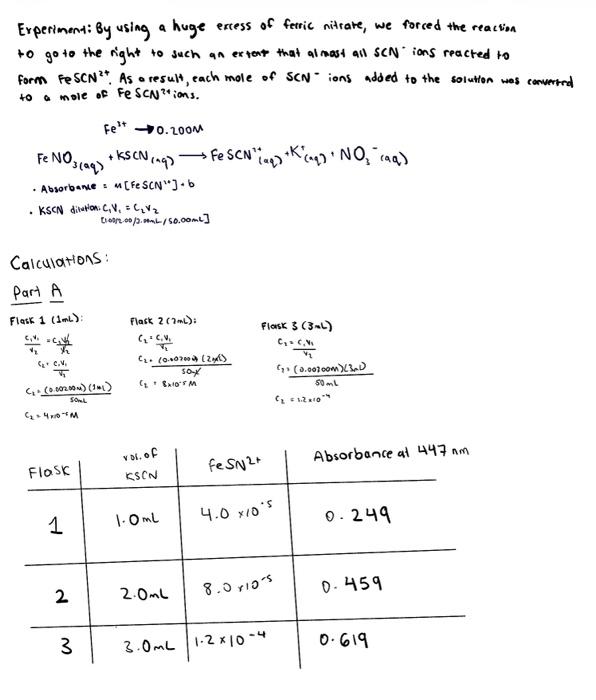 Experiment: By using a huge excess of ferric nitrate, we forced the reaction
to go to the right to such an extent that almost all SCN⁻ ions reacted to
form FeSCN²⁺. As a result, each mole of SCN⁻ ions added to the solution was converted
to a mole of FeSCN²⁺ ions.
Fe³⁺ → 0.200M
FeNO₃(aq) + KSCN(aq) → FeSCN²⁺(aq) + K⁺(aq) + NO₃⁻(aq)
• Absorbance = m[FeSCN²⁺] + b
• KSCN dilution: C₁V₁ = C₂V₂
[1.00/2.00/3.00mL/50.00mL]
Calculations:
Part A
Flask 1 (1mL): Flask 2 (2mL): Flask 3 (3mL)
C₁V₁/V₂ = C₂V₂/V₂ C₂ = C₁V₁/V₂ C₂ = C₁V₁/V₂
C₂ = C₁V₁/V₂ C₂ = (0.00200M)(2mL)/50mL C₂ = (0.00200M)(3mL)/50mL
C₂ = (0.00200M)(1mL)/50mL C₂ = 8x10⁻⁵ M C₂ = 1.2x10⁻⁴
C₂ = 4x10⁻⁵ M
Flask vol. of KSCN FeSN²⁺ Absorbance at 447 nm
1 1.0mL 4.0 x10⁻⁵ 0.249
2 2.0mL 8.0x10⁻⁵ 0.459
3 3.0mL 1.2x10⁻⁴ 0.619